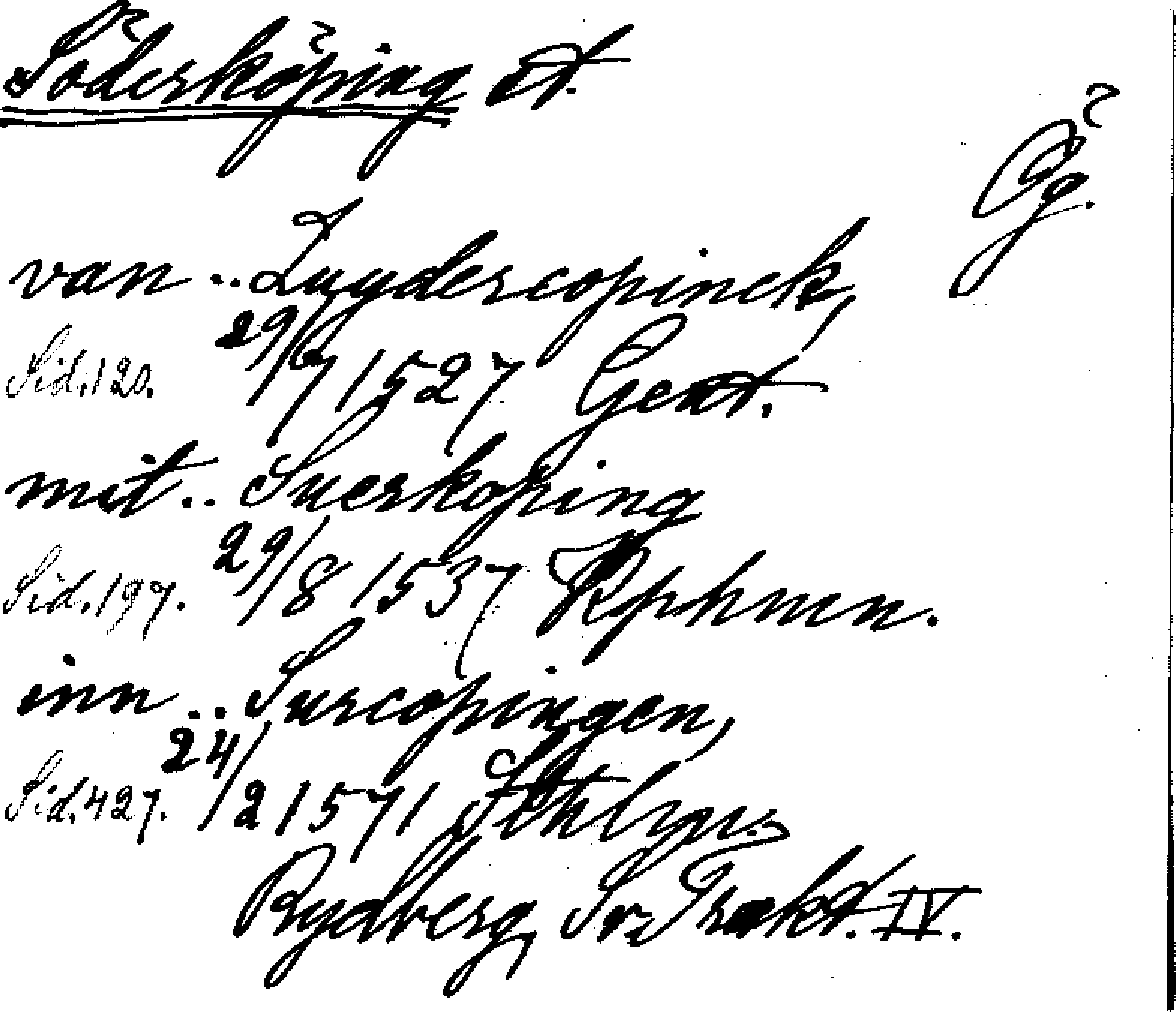 Söderköping st.
Ög.
van .. Zuydercopinck,
Sid. 120. 29/7 1527 Gent.
mit .. Suerkoping
Sid. 197. 29/8 1537 Kphmn.
inn .. Surcopingen,
Sid. 427. 24/2 1571 Sthlm.
Rydberg, Sv. Trakt. IV.